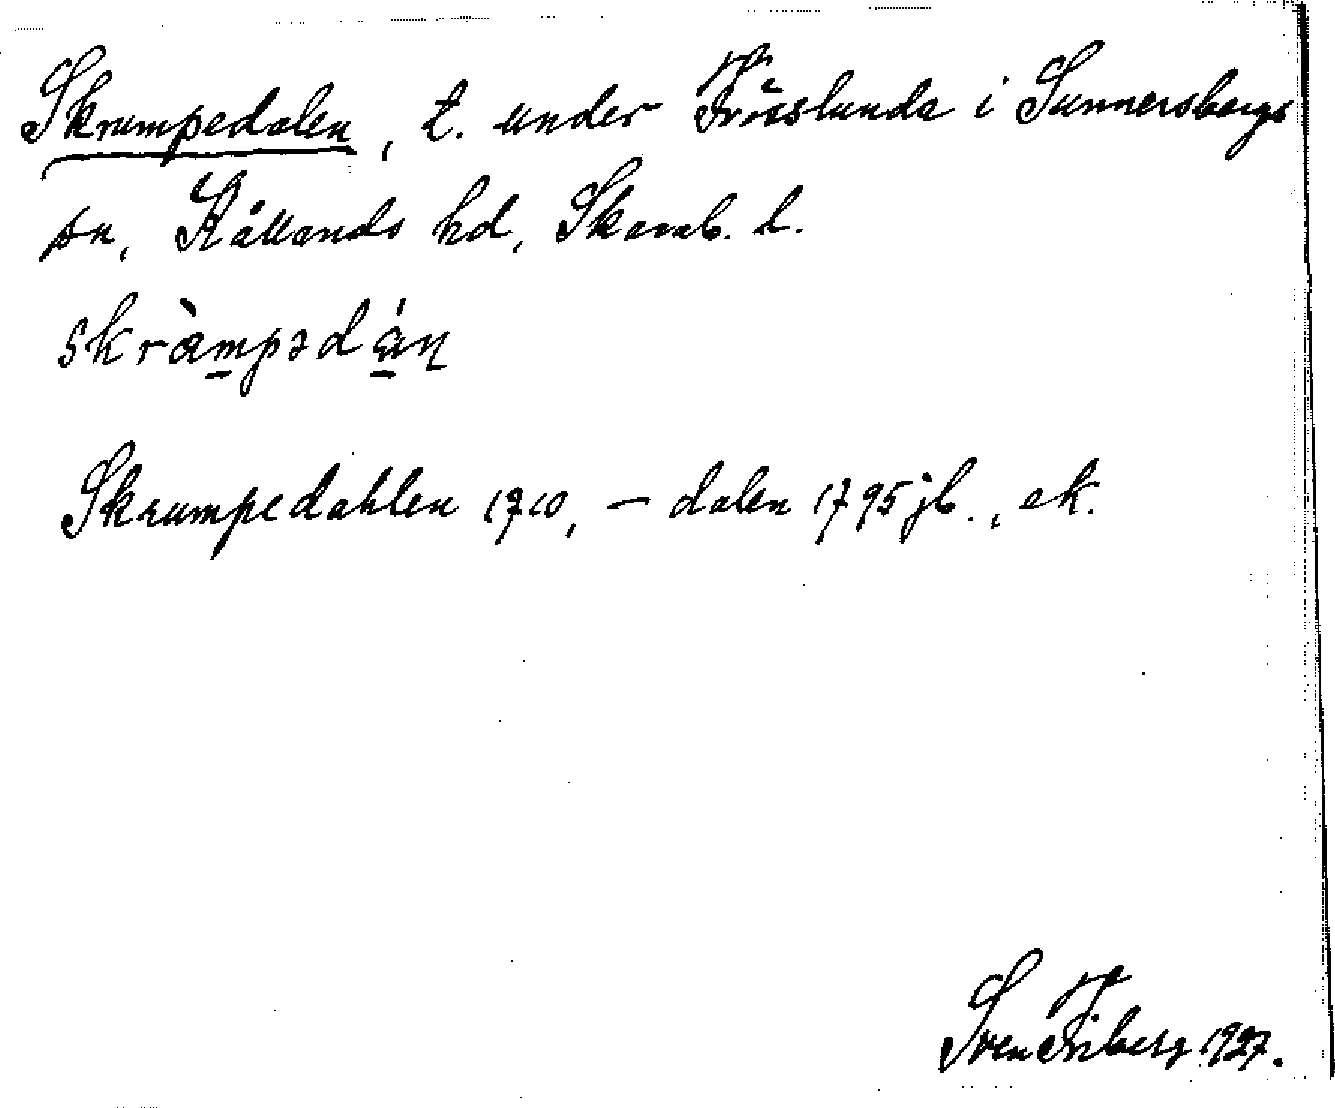 Skrumpedalen, t. under Truslunda i Sunnersbergs
sn, Kållands hd, Skarab. l.
skràmpədáɳ
Skrumpedahlen 1710, – dalen 1795 jb., ek.
Sven Friberg 1927.